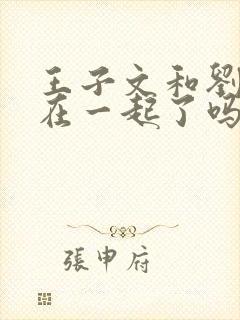 王子文和劉
在一起了嗎
張申府